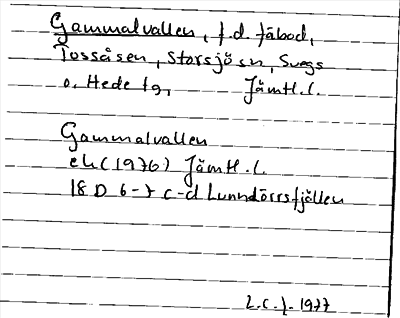 Gammalvallen, f.d. fäbod,
Tossåsen, Storsjö sn, Svegs
o. Hede tg, Jämtl.l.
Gammalvallen
ek (1976) Jämtl.l.
18 D 6-7 c-d Lunndörrsfjällen
L.C.J. 1977